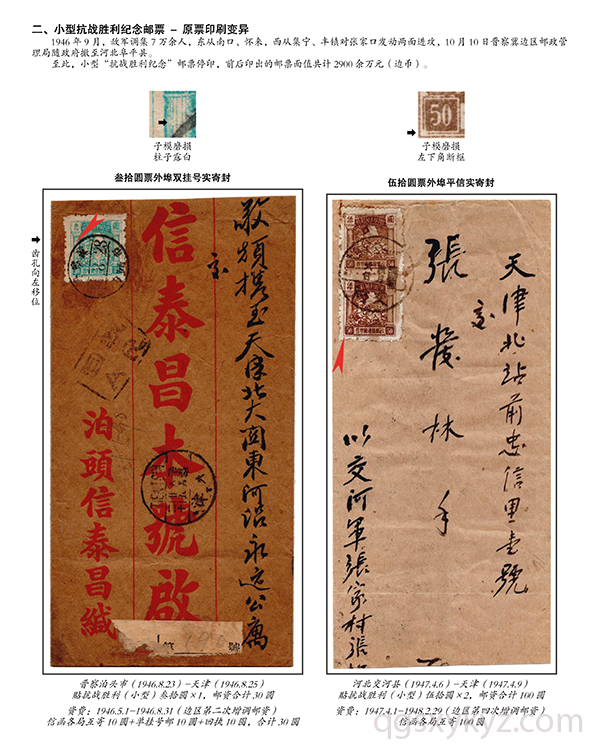 二、小型抗战胜利纪念邮票 – 原票印刷变异
1946年9月，敌军调集7万余人，东从南口、怀来，西从集宁、丰镇对张家口发动两面进攻，10月10日晋察冀边区邮政管
理局随政府撤至河北阜平县。
至此，小型“抗战胜利纪念”邮票停印，前后印出的邮票面值共计2900余万元（边币）。
子模磨损
柱子露白
50
子模磨损
左下角断框
叁拾圆票外埠双挂号实寄封
伍拾圆票外埠平信实寄封
齿孔向左移位
敬煩携至天津北大関東河沿永远公寓
交
信泰昌大號啟
泊頭信泰昌緘
號
天津北站前忠信里壹號
交
張發林手
以交河軍張家村張
晋察泊头市（1946.8.23）–天津（1946.8.25）
贴抗战胜利（小型）叁拾圆×1，邮资合计30圆
资费：1946.5.1–1946.8.31（边区第二次增调邮资）
信函各局互寄10圆+单挂号邮10圆+回执10圆，合计30圆
河北交河县（1947.4.6）–天津（1947.4.9）
贴抗战胜利（小型）伍拾圆×2，邮资合计100圆
资费：1947.4.1–1948.2.29（边区第四次增调邮资）
信函各局互寄100圆
qgsxykyz.com